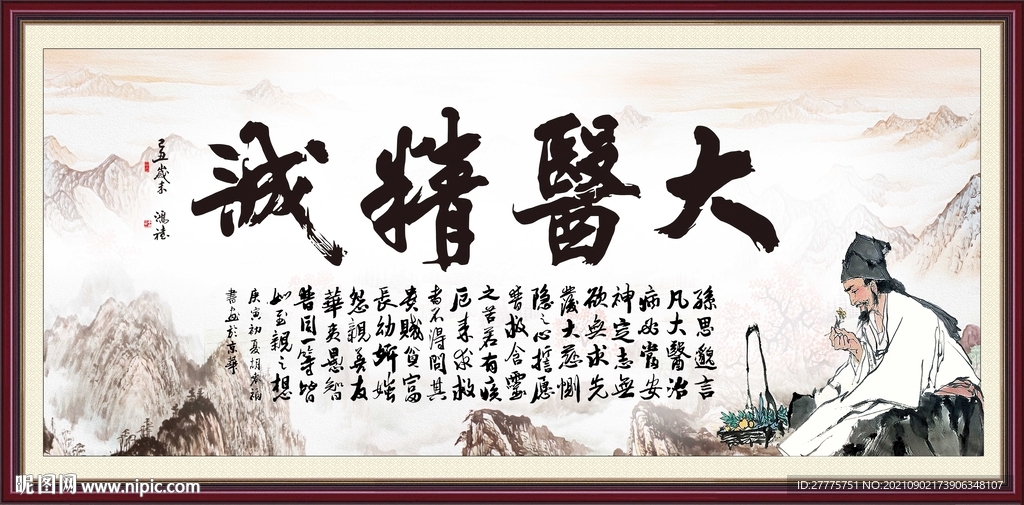 大醫精誠
己丑歲末 鴻禧
孫思邈言
凡大醫治
病必當安
神定志無
欲無求先
發大慈惻
隱之心誓愿
普救含靈
之苦若有疾
厄来求救
者不得問其
貴賤貧富
長幼妍媸
怨親善友
華夷愚智
普同一等皆
如至親之想
庚寅初夏胡
書画於京華
昵图网 www.nipic.com
ID:27775751 NO:20210902173906348107